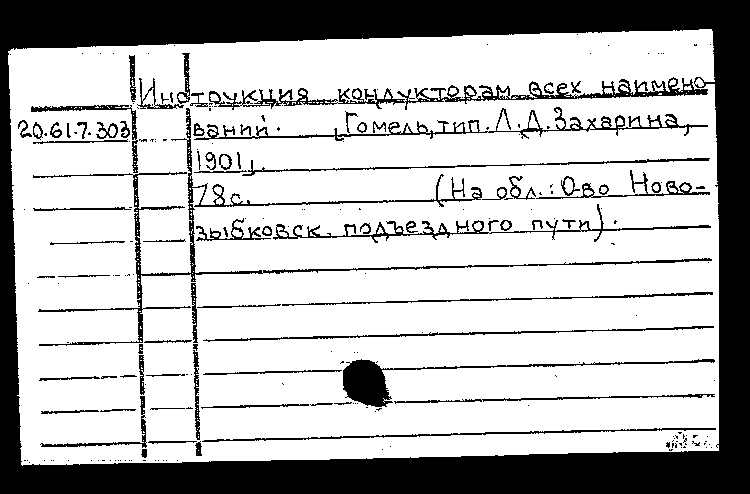 Инструкция кондукторам всех наимено-
20.61.7.303 ваний. [Гомель, тип. Л.Д. Захарина,
1901].
78с. (На обл.: О-во Ново-
зыбковск. подъездного пути).